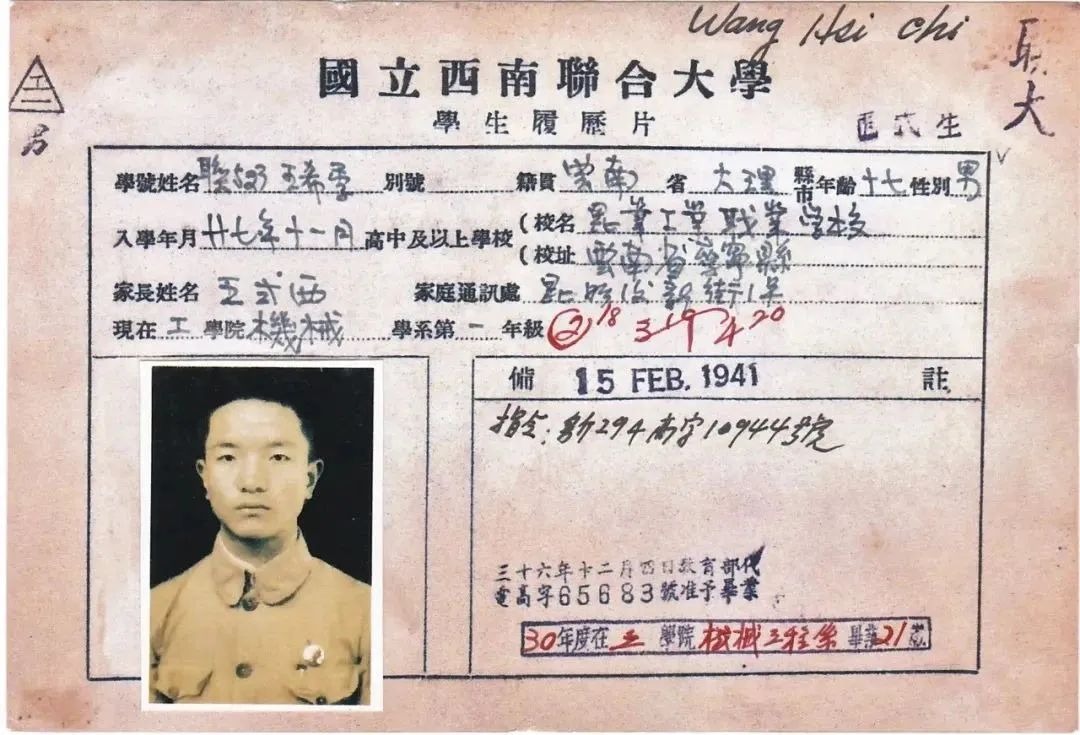 Wang Hsi chi
工
二
男
國立西南聯合大學
學生履歷片
正式生
大
學號姓名 聯523 王希季 別號 籍貫 雲南 省 大理 縣市 年齡 十七 性別 男
入學年月 廿七年十一月 高中及以上學校 (校名 昆華工業職業学校
(校址 雲南省晉寧縣
家長姓名 王式西 家庭通訊處 昆明
現在 工 學院 機械 學系第 一 年級 ② 18 3 19 4 20
備 15 FEB. 1941 註
指令:
294高字10944號
三十六年十二月四日教育部代
電高字65683號准予畢業
30年度在 工 學院 機械工程系 畢業 21